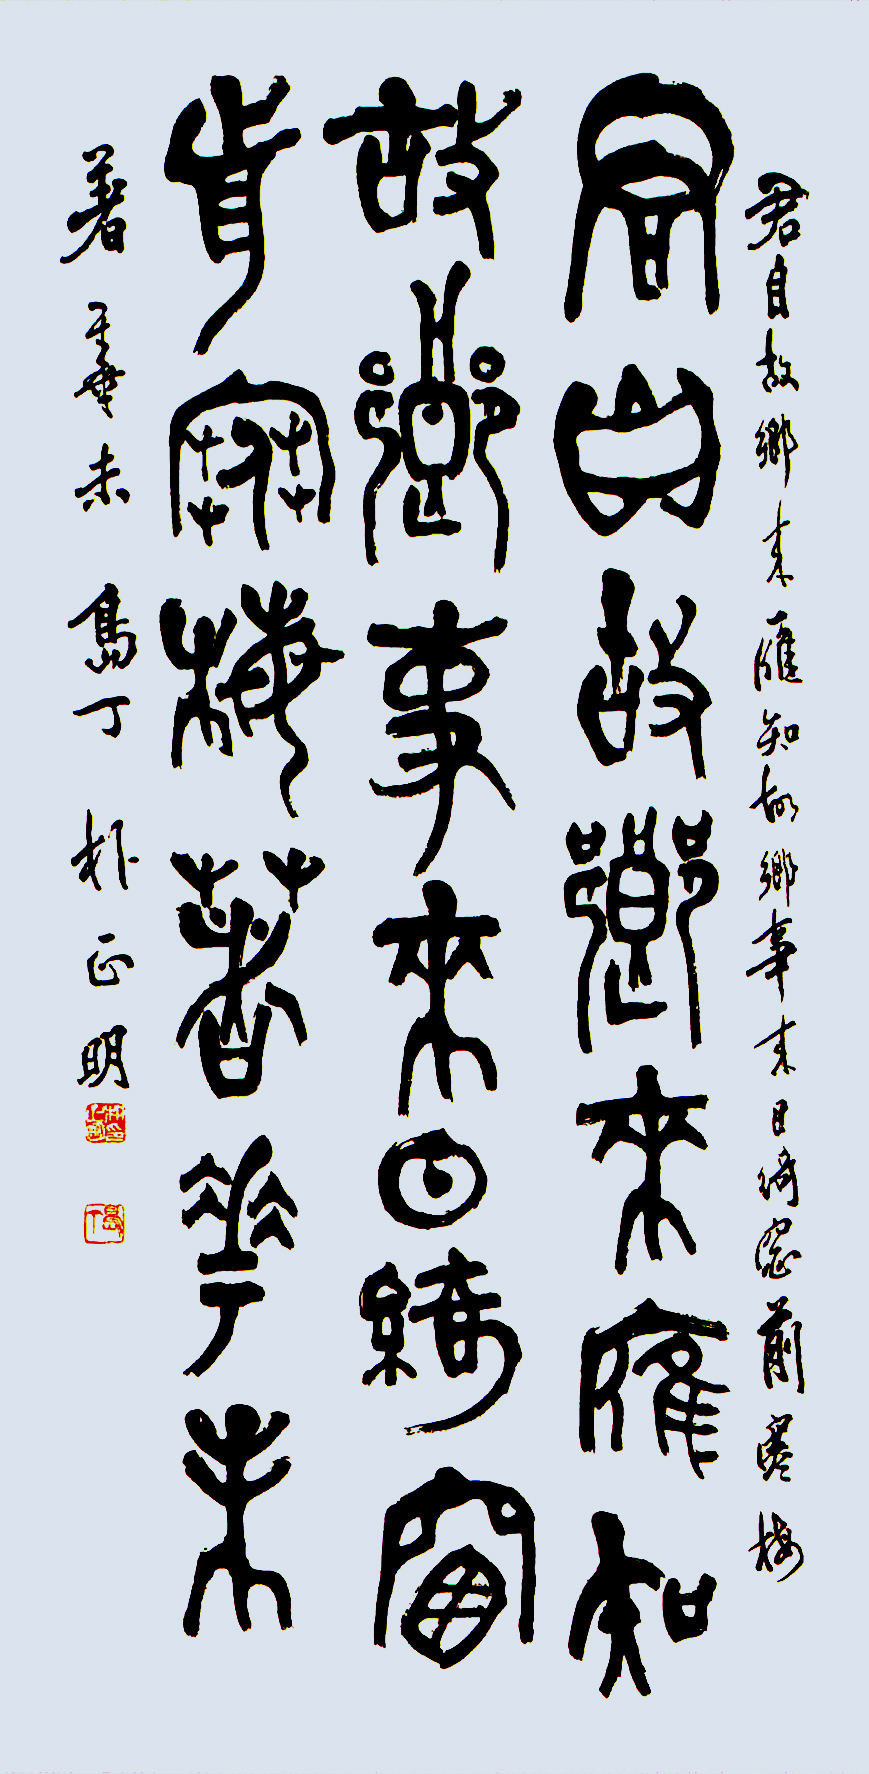 君自故鄉来應知故鄉事来日綺窓前寒梅
君自故鄉來應知
故鄉事來日綺窗
前寒梅著華未
著華未 島丁 朴正明